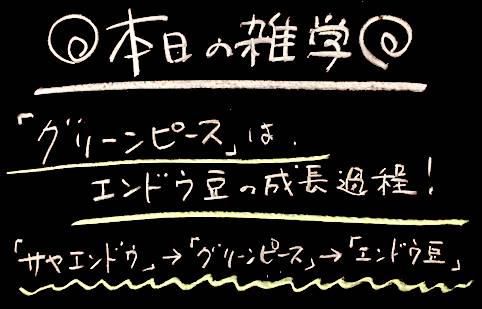 本日の雑学
「グリーンピース」は、
エンドウ豆の成長過程!
「サヤエンドウ」→「グリーンピース」→「エンドウ豆」